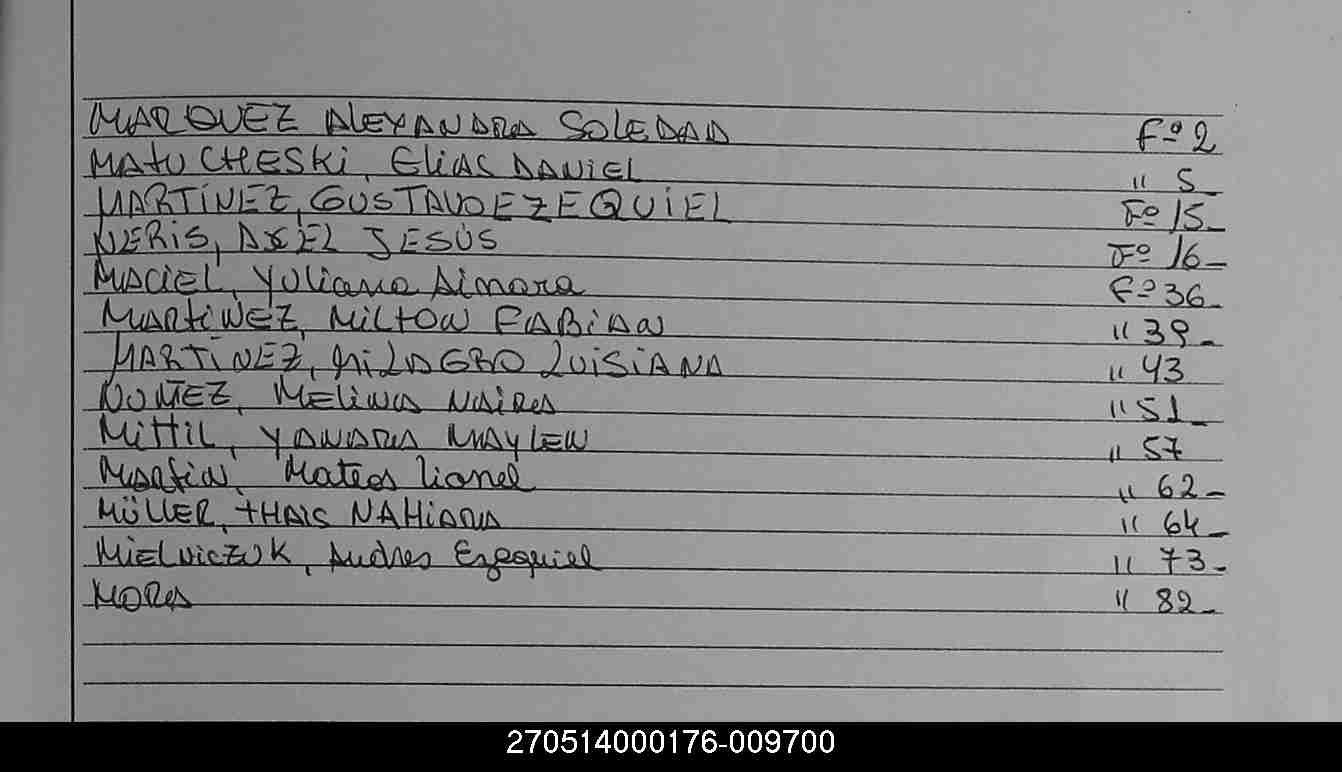 MARQUEZ ALEXANDRA SOLEDAD Fº 2
MATUCHESKI, ELIAS DANIEL " 5_
MARTÍNEZ, GUSTAVO EZEQUIEL Fº 15_
NERIS, AXEL JESÚS Fº 16_
MACIEL, Yuliana Aimara Fº 36_
MARTINEZ, MILTON FABIAN " 39_
MARTÍNEZ, MILAGRO LUISIANA " 43
NUÑEZ, MELINA NAIRA " 51_
MITTIL, YANARA MAYLEN " 57
Martin, Mateo Lionel " 62_
MÜLLER, THAIS NAHIARA " 64_
MIELNICZUK, Andres Ezequiel " 73_
MORA " 82_
270514000176-009700